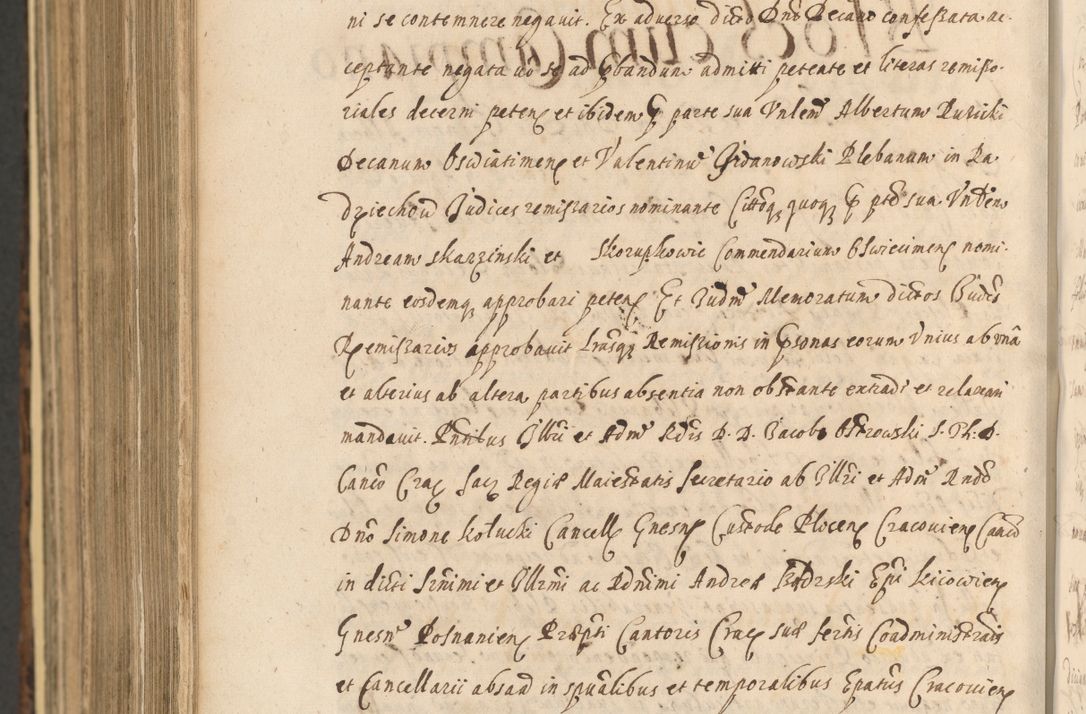 ni se contemnere negauit. Ex aduerso dicto Dno Decano confessata ac-
ceptante negata uo se ad pbandum admitti petente et literas remisso-
riales decerni peten et ibidem p parte sua Vnlem Albertum Rusicki
Decanum Osviatimen et Valentinu Grdanowski Plebanum in Ra
dziechow Judices remissarios nominante Cittoq quoq p pte sua Vnden
Andream skarzinski et Skorupkowic Commendarium Oswiecimen nomi-
nante eosdemq approbari peten Et Judm Memoratum dictos Judes
Remissarios approbauit Lrasq Remissionis in psonas eorum Vnius ab vna
et alterius ab altera partibus absentia non obstante extradi et relaxari
mandauit. Pntibus Illri et Adm Rdis D. D. Jacobo Ostrowski S. Th: D.
Canco Crac Sac Regiæ Maiestatis Secretario ab Illri et Adm Rndo
Dno Simone Kołucki Cancell Gnesn Custode Plocen Cracouien Canco
in dicti Srmimi et Illrmi ac Rdnimi Andreæ Epi Kijowien
Gnesn Posnanien Præpti Cantoris Crac suæ sertis Coadministratis
et Cancellarii absad in spualibus et temporalibus Epatus Cracouien